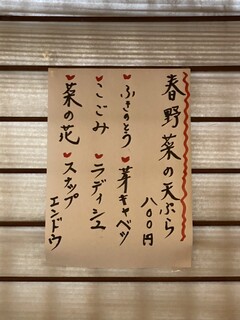 春野菜の天ぷら
八〇〇円
ふきのとう
芽キャベツ
こごみ
ラディシュ
菜の花
スナップ
エンドウ